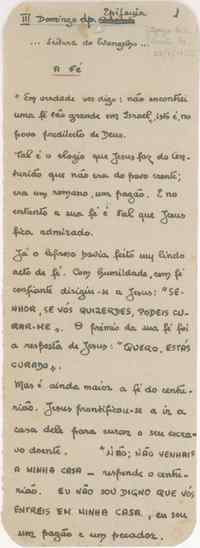 III Domingo dp. Epifania 1
... Leitura do Evangelho ...
A Fé
"Em verdade vos digo: não encontrei
uma fé tão grande em Israel", isto é, no
povo predilecto de Deus.
Tal é o elogio que Jesus faz do Cen-
turião que não era do povo crente;
era um romano, um pagão. E no
entanto a sua fé é tal que Jesus
fica admirado.
Já o leproso havia feito um lindo
acto de fé. Com humildade, com fé
confiante dirigiu-se a Jesus: "SE-
NHOR, SE VÓS QUIZERDES, PODEIS CU-
RAR-ME". O prémio da sua fé foi
a resposta de Jesus: "QUERO, ESTÁS
CURADO".
Mas é ainda maior a fé do centu-
rião. Jesus prontificou-se a ir a
casa dele para curar o seu escra-
vo doente. "NÃO; NÃO VENHAIS
A MINHA CASA — responde o centu-
rião. EU NÃO SOU DIGNO QUE VÓS
ENTREIS EM MINHA CASA, eu sou
um pagão e um pecador.